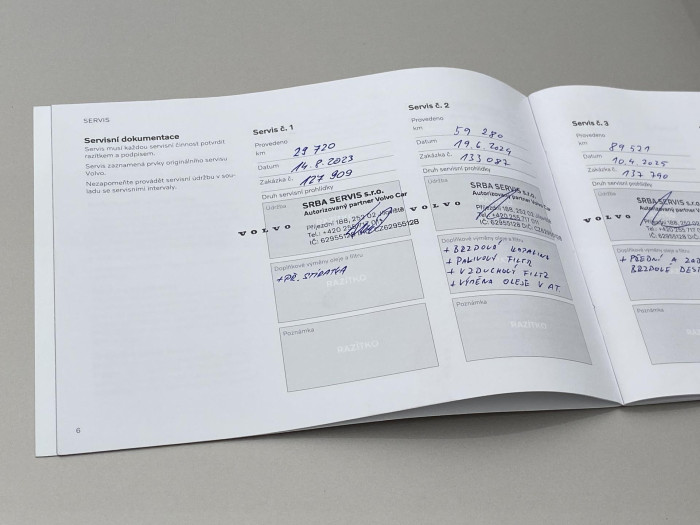 SERVIS
Servisní dokumentace
Servis musí každou servisní činnost potvrdit
razítkem a podpisem.
Servis zaznamená prvky originálního servisu
Volvo.
Nezapomeňte provádět servisní údržbu v sou-
ladu se servisními intervaly.
6
Servis č. 1
Provedeno
km 29 720
Datum 14.8.2023
Zakázka č. 127 909
Druh servisní prohlídky
Údržba
SRBA SERVIS s.r.o.
Autorizovaný partner Volvo Car
Přijezdní 188, 252 02 Jíloviště
VOLVO
Doplňkové výměny oleje a filtru
+PŘ. STÍRÁTKA
RAZÍTKO
Poznámka
RAZÍTKO
Servis č. 2
Provedeno
km 59 280
Datum 19.6.2024
Zakázka č. 133 087
Druh servisní prohlídky
Údržba
SRBA SERVIS s.r.o.
Autorizovaný partner Volvo Car
VOLVO
Doplňkové výměny oleje a filtru
+ BRZDOVÁ KAPALINA
+ PALIVOVÝ FILTR
+ VZDUCHOVÝ FILTR
+ VÝMĚNA OLEJE V AT
Poznámka
RAZÍTKO
Servis č. 3
Provedeno
km 89 521
Datum 10.4.2025
Zakázka č. 137 790
Druh servisní prohlídky
Údržba
SRBA SERVIS s.r.o.
Autorizovaný partner Vo
VOLVO
Doplňkové výměny oleje a filtru
+ PŘEDNÍ A ZAD
BRZDOVÉ DES
Poznámka